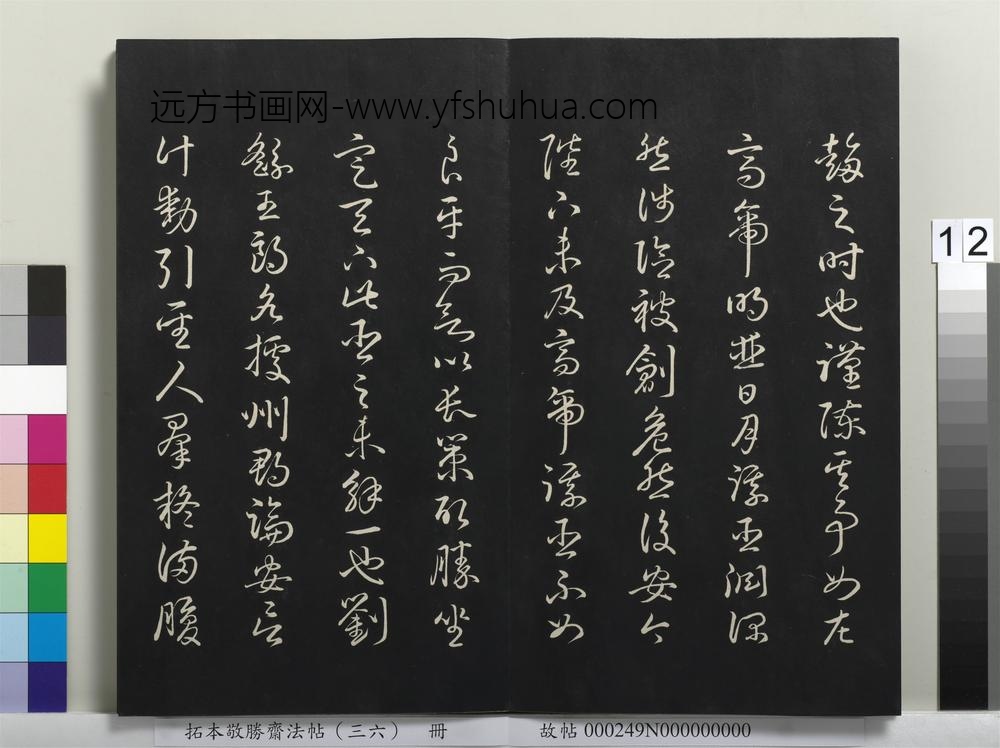 远方书画网-www.yfshuhua.com
趨之時也謹陳其事如左
高帝明並日月謀臣淵深
然涉險被創危然後安今
陛下未及高帝謀臣不如
良平而欲以長策取勝坐
定天下此臣之未解一也劉
繇王朗各據州郡論安言
計動引聖人羣疑滿腹
12
拓本敬勝齋法帖(三六) 冊 故帖 000249N000000000